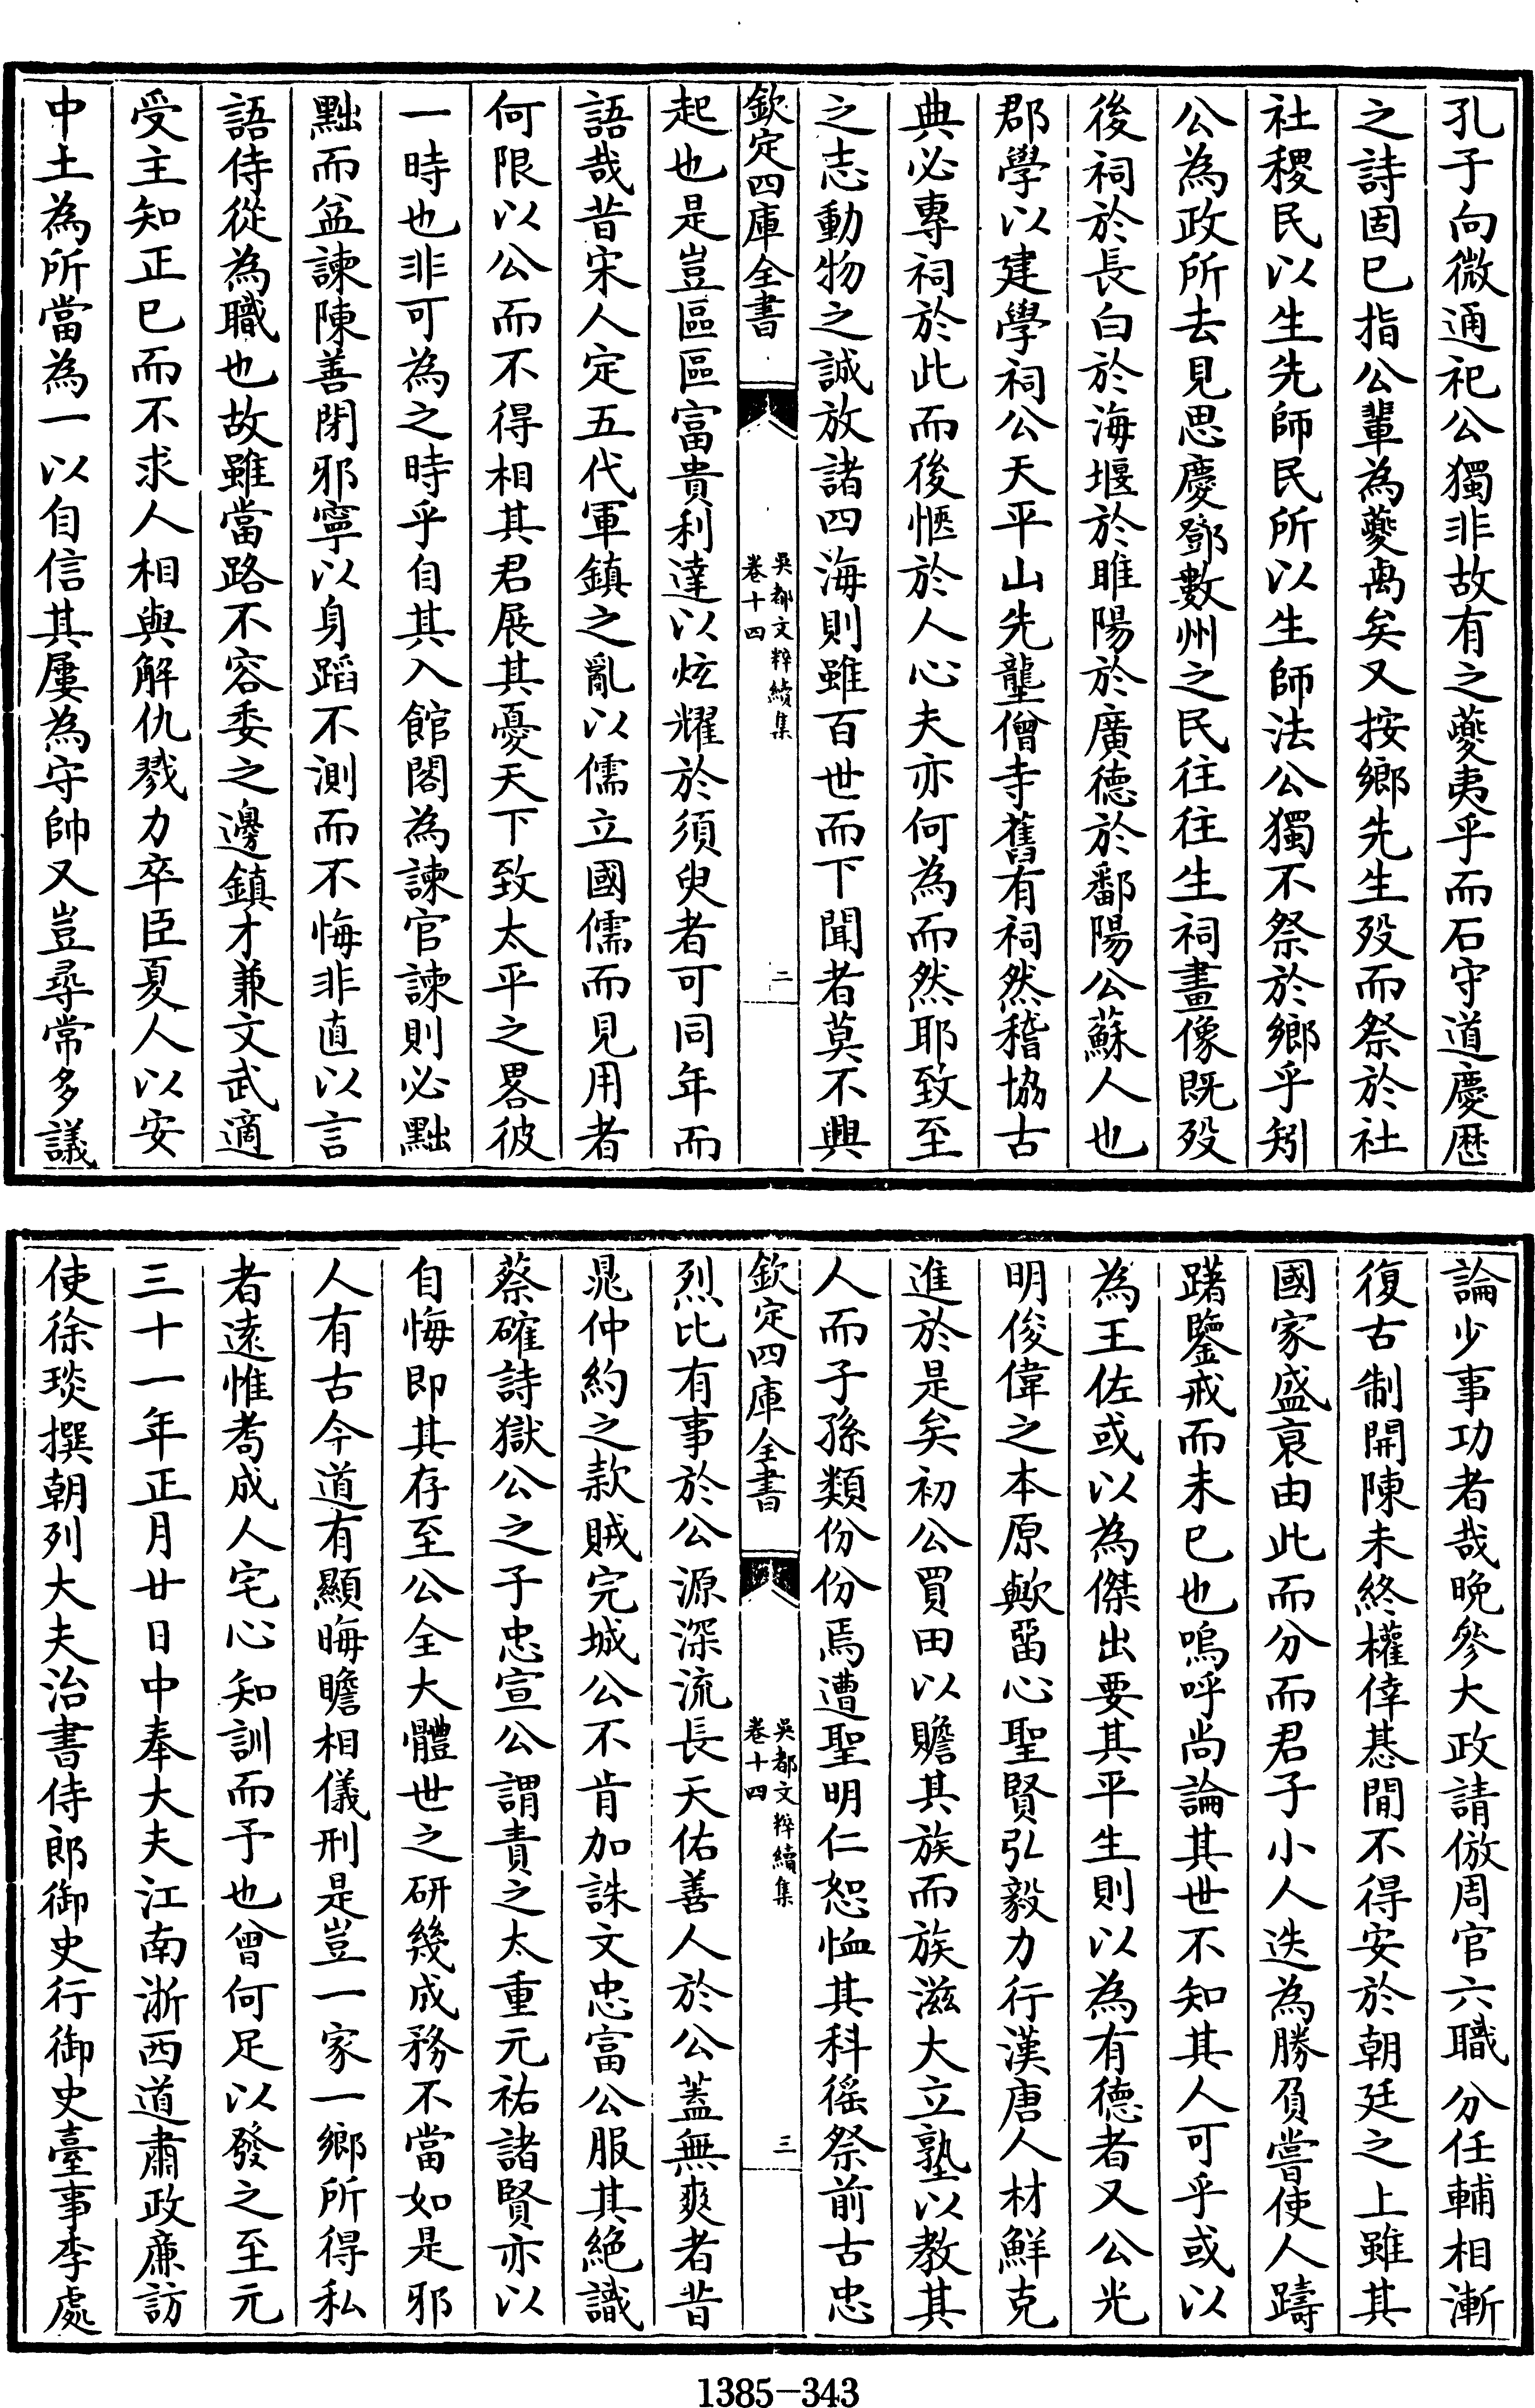 孔子向微通祀公獨非故有之夔夷乎而石守道慶歴
之詩固已指公輩為夔禼矣又按鄉先生歿而祭於社
社稷民以生先師民所以生師法公獨不祭於鄉乎矧
公為政所去見思慶鄧數州之民往往生祠畫像既歿
後祠於長白於海堰於睢陽於廣德於鄱陽公蘇人也
郡學以建學祠公天平山先壟僧寺舊有祠然稽協古
典必專祠於此而後愜於人心夫亦何為而然耶致至
之志動物之誠放諸四海則雖百世而下聞者莫不興
欽定四庫全書
吳都文粹續集
卷十四
二
起也是豈區區富貴利達以炫耀於須臾者可同年而
語哉昔宋人定五代軍鎮之亂以儒立國儒而見用者
何限以公而不得相其君展其憂天下致太平之畧彼
一時也非可為之時乎自其入館閣為諫官諫則必黜
黜而益諫陳善閉邪寧以身蹈不測而不悔非直以言
語侍從為職也故雖當路不容委之邊鎮才兼文武適
受主知正已而不求人相與解仇戮力卒臣夏人以安
中土為所當為一以自信其屢為守帥又豈尋常多議
論少事功者哉晚參大政請倣周官六職分任輔相漸
復古制開陳未終權倖惎間不得安於朝廷之上雖其
國家盛衰由此而分而君子小人迭為勝負嘗使人躊
躇鑒戒而未已也嗚呼尚論其世不知其人可乎或以
為王佐或以為傑出要其平生則以為有德者又公光
明俊偉之本原歟畱心聖賢弘毅力行漢唐人材鮮克
進於是矣初公買田以贍其族而族滋大立塾以教其
人而子孫類份份焉遭聖明仁恕恤其科徭祭前古忠
欽定四庫全書
吳都文粹續集
卷十四
三
烈比有事於公源深流長天佑善人於公蓋無爽者昔
晁仲約之款賊完城公不肯加誅文忠富公服其絕識
蔡確詩獄公之子忠宣公謂責之太重元祐諸賢亦以
自悔即其存至公全大體世之研幾成務不當如是邪
人有古今道有顯晦瞻相儀刑是豈一家一鄉所得私
者遠惟耇成人宅心知訓而予也曾何足以發之至元
三十一年正月廿日中奉大夫江南浙西道肅政廉訪
使徐琰撰朝列大夫治書侍郎御史行御史臺事李處
1385-343